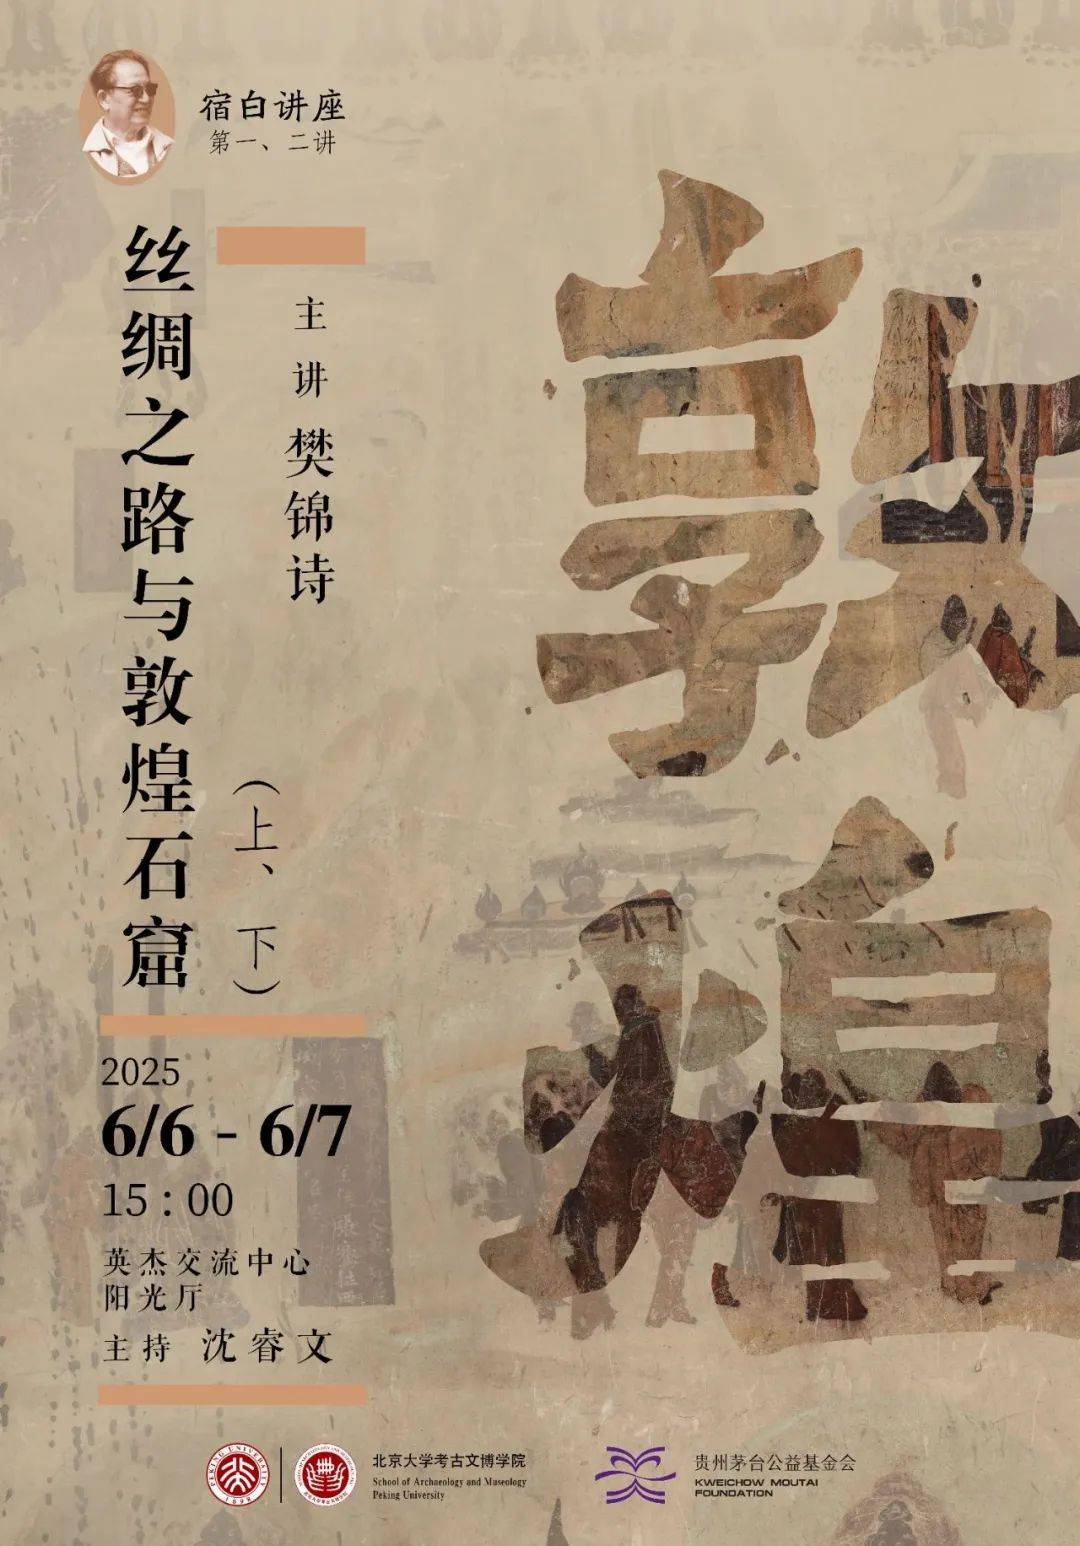 宿白讲座
第一、二讲
丝绸之路与敦煌石窟
（上、下）
主讲 樊锦诗
敦煌
2025
6/6 - 6/7
15：00
英杰交流中心
阳光厅
主持 沈睿文
PEKING UNIVERSITY
1898
北京大学考古文博学院
School of Archaeology and Museology
Peking University
贵州茅台公益基金会
KWEICHOW MOUTAI
FOUNDATION